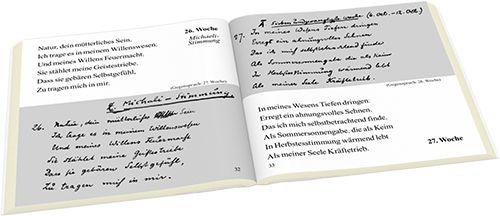 Natur, dein mütterliches Sein,
Ich trage es in meinem Willenswesen;
Und meines Willens Feuermacht,
Sie stählet meine Geistestriebe,
Dass sie gebären Selbstgefühl,
Zu tragen mich in mir.
26. Woche
Michaeli-
Stimmung
(Gegenspruch: 27. Woche)
Michaeli-Stimmung
26. Natur, dein mütterliches Sein
Ich trage es in meinem Willenswesen
Und meines Willens Feuermacht
Sie stählet meine Geistestriebe
Dass sie gebären Selbstgefühl,
Zu tragen mich in mir.
32
Siebenundzwanzigste Woche (6. Oct. - 12. Oct.)
27. In meines Wesens Tiefen dringen
Erregt ein ahnungsvolles Sehnen
Das ich mich selbstbetrachtend finde
Als Sommersonnengabe, die als Keim
In Herbstesstimmung wärmend lebt
Als meiner Seele Kräftetrieb.
(Gegenspruch: 26. Woche)
In meines Wesens Tiefen dringen:
Erregt ein ahnungsvolles Sehnen,
Das ich mich selbstbetrachtend finde,
Als Sommersonnengabe, die als Keim
In Herbstesstimmung wärmend lebt
Als meiner Seele Kräftetrieb.
27. Woche
33